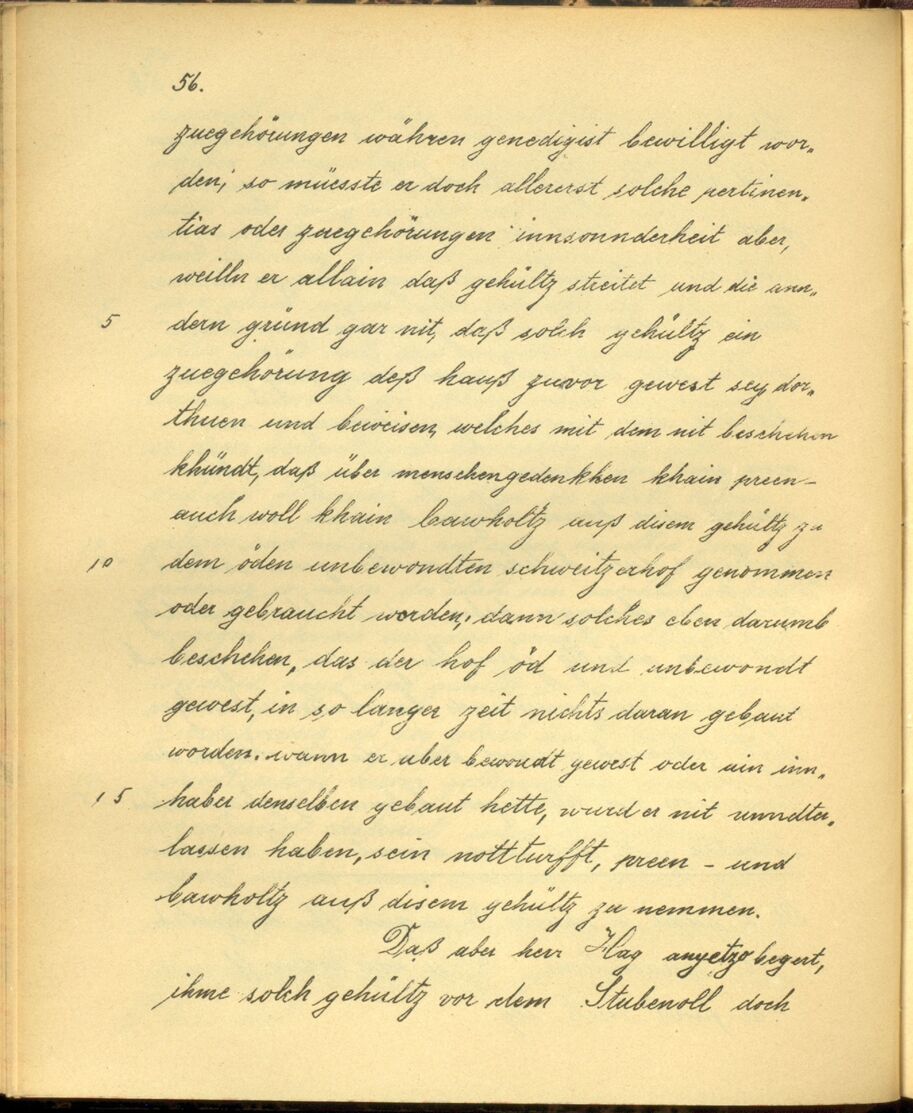 56.
zuegehörungen währen genedigist bewilligt wor„
den; so müesste er doch allererst solche pertinen„
tias oder zuegehörungen innsonnderheit aber,
weilln er allain daß gehültz streitet und die ann„
5 dern gründ gar nit, daß solch gehültz ein
zuegehörung deß hauß zuvor gewest sey, dar„
thuen und beweisen, welches mit dem nit beschehen
khündt, daß über menschengedenkhen khain preen-
auch woll khain bawholtz auß disem gehültz zu
10 dem öden unbewondten schweitzerhof genommen
oder gebraucht worden; dann solches eben darumb
beschehen, das der hof öd und unbewondt
gewest, in so langer zeit nichts daran gebaut
worden. wann er aber bewondt gewest oder ain inn„
15 haber denselben gebaut hette, wurd er nit unndter„
lassen haben, sein nottturfft, preen - und
bawholtz auß disem gehültz zu nemmen.
Daß aber herr Hag anyetzo begert,
ihme solch gehültz vor dem Stubenoll doch